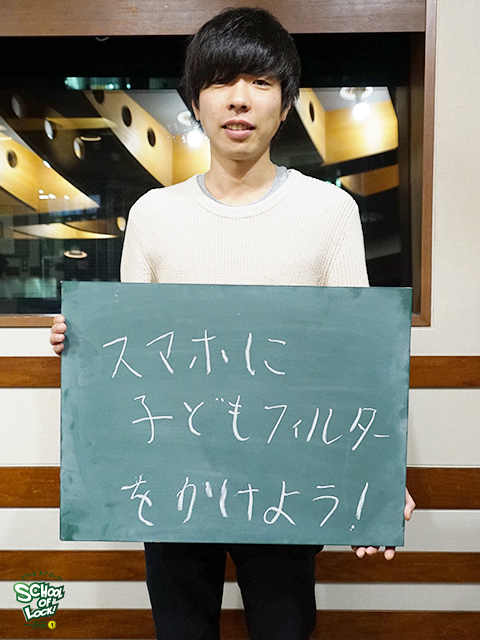 スマホに
子どもフィルター
をかけよう!
SCHOOL
OF
LOCK!